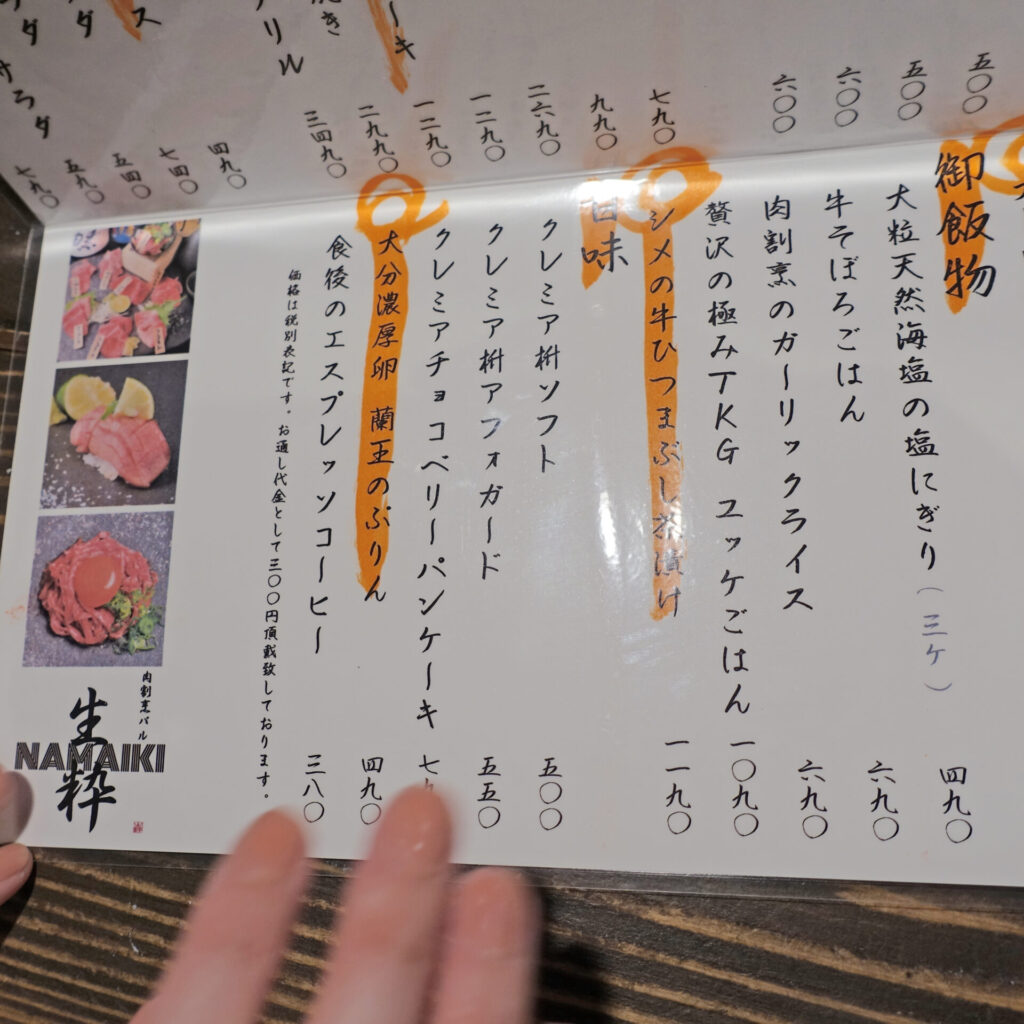 御飯物
大粒天然海塩の塩にぎり（三ケ） 四九〇
牛そぼろごはん 六九〇
肉割烹のガーリックライス 六九〇
贅沢の極みTKG ユッケごはん 一〇九〇
シメの牛ひつまぶし茶漬け 一一九〇
甘味
クレミア枡ソフト 五〇〇
クレミア枡アフォガード 五五〇
クレミアチョコベリーパンケーキ
大分濃厚卵 蘭王のぷりん 四九〇
食後のエスプレッソコーヒー 三八〇
価格は税別表記です。お通し代金として三〇〇円頂戴致しております。
肉割烹バル
生粋
NAMAIKI
五〇〇
五〇〇
六〇〇
六〇〇
七九〇
九九〇
二六九〇
一二九〇
一二九〇
二九九〇
三四九〇
四九〇
七四〇
五四〇
五九〇
七九〇